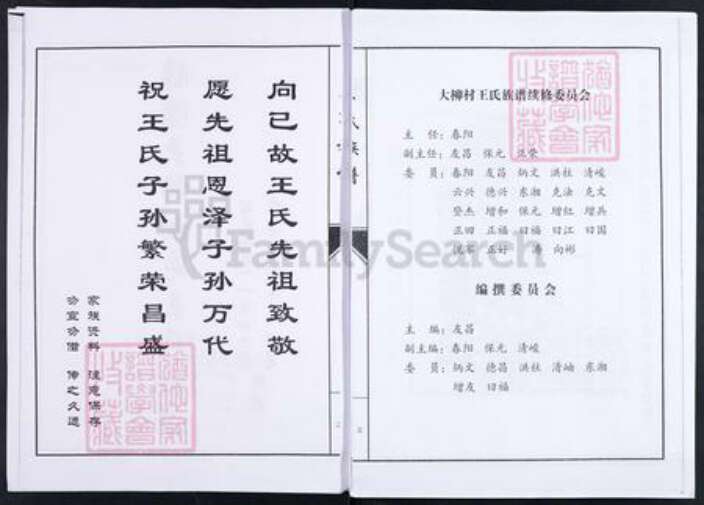 向已故王氏先祖致敬
愿先祖恩泽子孙万代
祝王氏子孙繁荣昌盛
家族资料 注意保存
传之久远
氏族谱
大柳村王氏族谱续修委员会
主 任：春阳
副主任：友昌 保元
委 员：春阳 友昌 炳文 洪柱 清峻
云兴 德兴 东湘 克法 克文
登杰 增和 保元 增红 增兵
正田 正福 曰福 曰江 曰国
正好 涛 向彬
编撰委员会
主 编：友昌
副主编：春阳 保元 清峻
委 员：炳文 德昌 洪柱 清岫 东湘
增友 曰福
FamilySearch